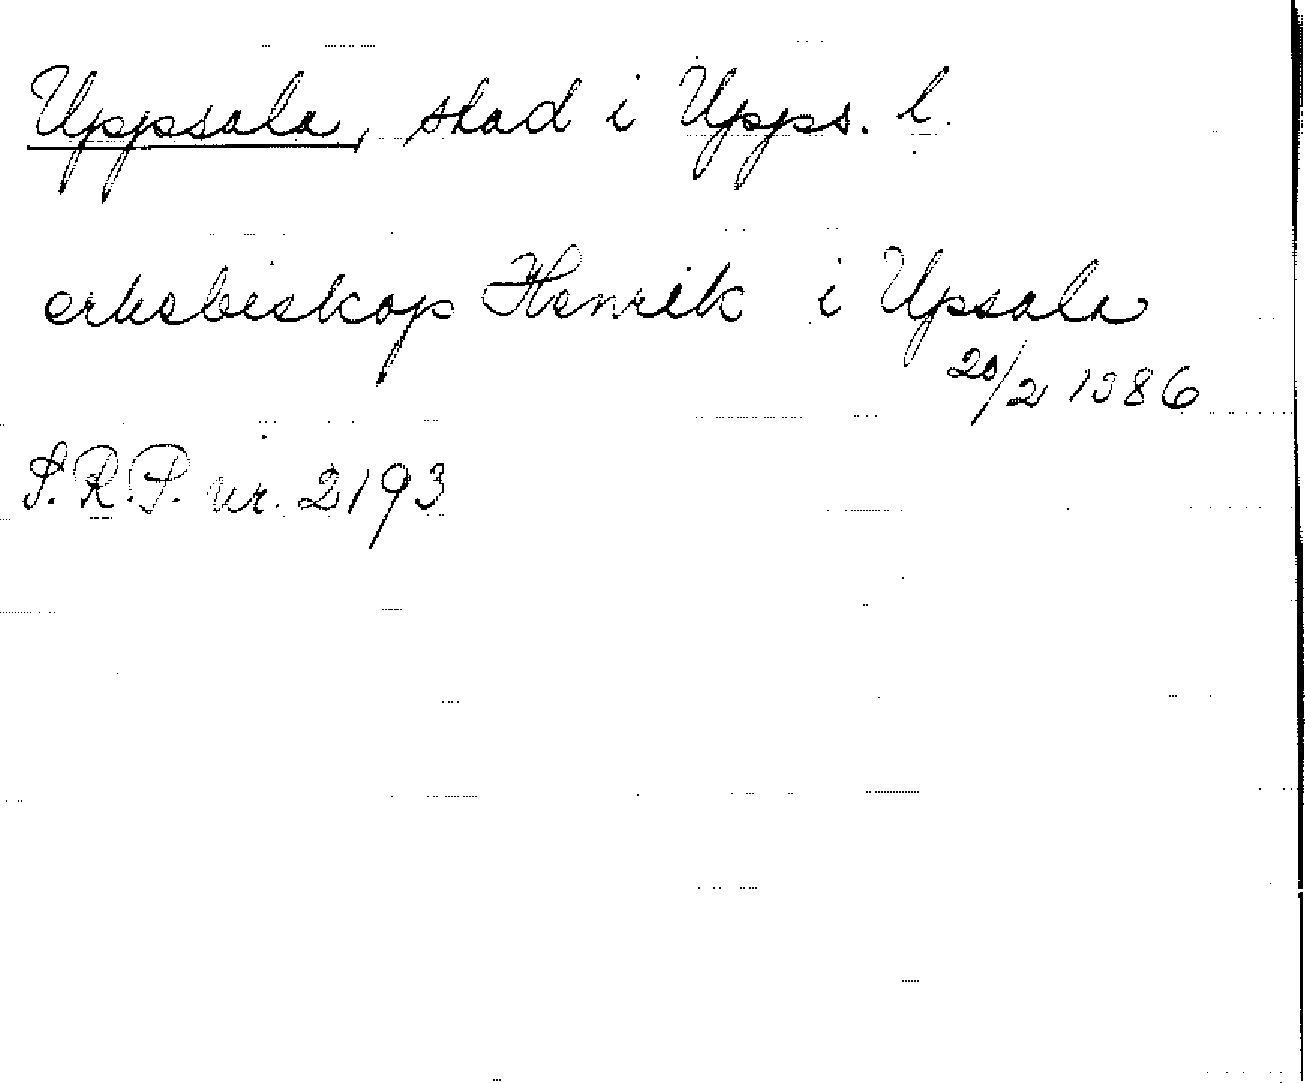 Uppsala, stad i Upps. l.
erkebiskop Henrik i Upsala
20/2 1386
S.R.P. nr. 2193